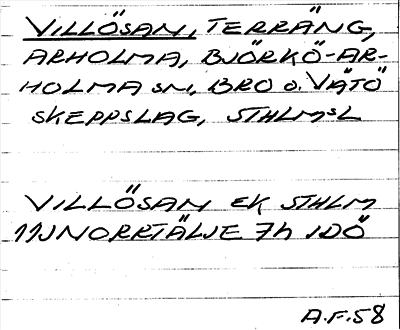 VILLÖSAN, TERRÄNG,
ARHOLMA, BJÖRKÖ-AR-
HOLMA SN, BRO O. VÄTÖ
SKEPPSLAG, STHLMSL
VILLÖSAN EK STHLM
11J NORRTÄLJE 7h IDÖ
A.F.58